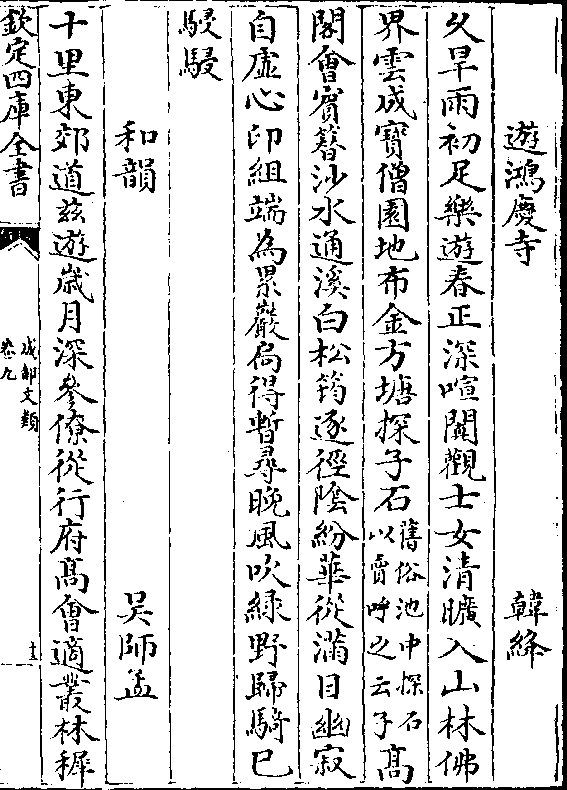 遊鴻慶寺　韓絳
久旱雨初足樂遊春正深喧闐觀士女清曠入山林佛
界雲成寶僧園地布金方塘探子石舊俗池中探石以賣呼之云子高
閣會賓簪沙水通溪白松筠逐徑陰紛華從滿目幽寂
自虛心印組端為累嚴扃得暫尋晚風吹緑野歸騎已
駸駸
和韻　吴師孟
十里東郊道兹遊嵗月深參僚從行府髙會適叢林穉
欽定四庫全書
成都文類
卷九